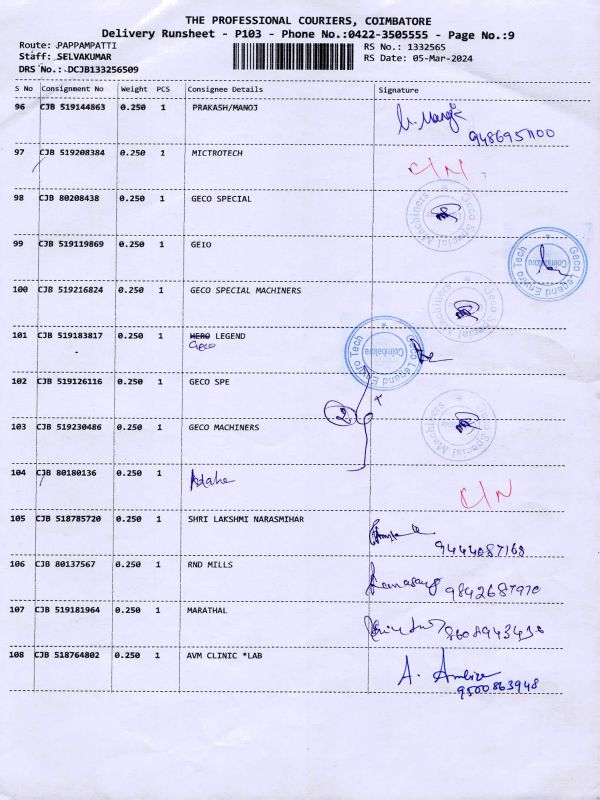 THE PROFESSIONAL COURIERS, COIMBATORE
Delivery Runsheet - P103 - Phone No.:0422-3505555 - Page No.:9
Route: PAPPAMPATTI
RS No.: 1332565
Staff: SELVAKUMAR
RS Date: 05-Mar-2024
DRS No.: DCJB133256509
S No Consignment No Weight PCS Consignee Details Signature
96 CJB 519144863 0.250 1 PRAKASH/MANOJ
97 CJB 519208384 0.250 1 MICTROTECH C/N
98 CJB 80208438 0.250 1 GECO SPECIAL
Geco Special Machiners
99 CJB 519119869 0.250 1 GEIO
Geco Legend Enviro Tech
Coimbatore
100 CJB 519216824 0.250 1 GECO SPECIAL MACHINERS
Geco Special Machiners
101 CJB 519183817 0.250 1 HERO LEGEND
Geco
Geco Legend Enviro Tech
Coimbatore
102 CJB 519126116 0.250 1 GECO SPE
103 CJB 519230486 0.250 1 GECO MACHINERS
Geco Special Machiners
104 CJB 80180136 0.250 1 C/N
105 CJB 518785720 0.250 1 SHRI LAKSHMI NARASMIHAR
9444087168
106 CJB 80137567 0.250 1 RND MILLS
107 CJB 519181964 0.250 1 MARATHAL
108 CJB 518764802 0.250 1 AVM CLINIC *LAB
9500863948